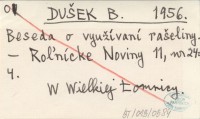 DUŠEK B. 1956.
Beseda o využívaní rašeliny.
– Roľnicke Noviny 11, nr 24
4.
W Wielkiej Łomnicy.